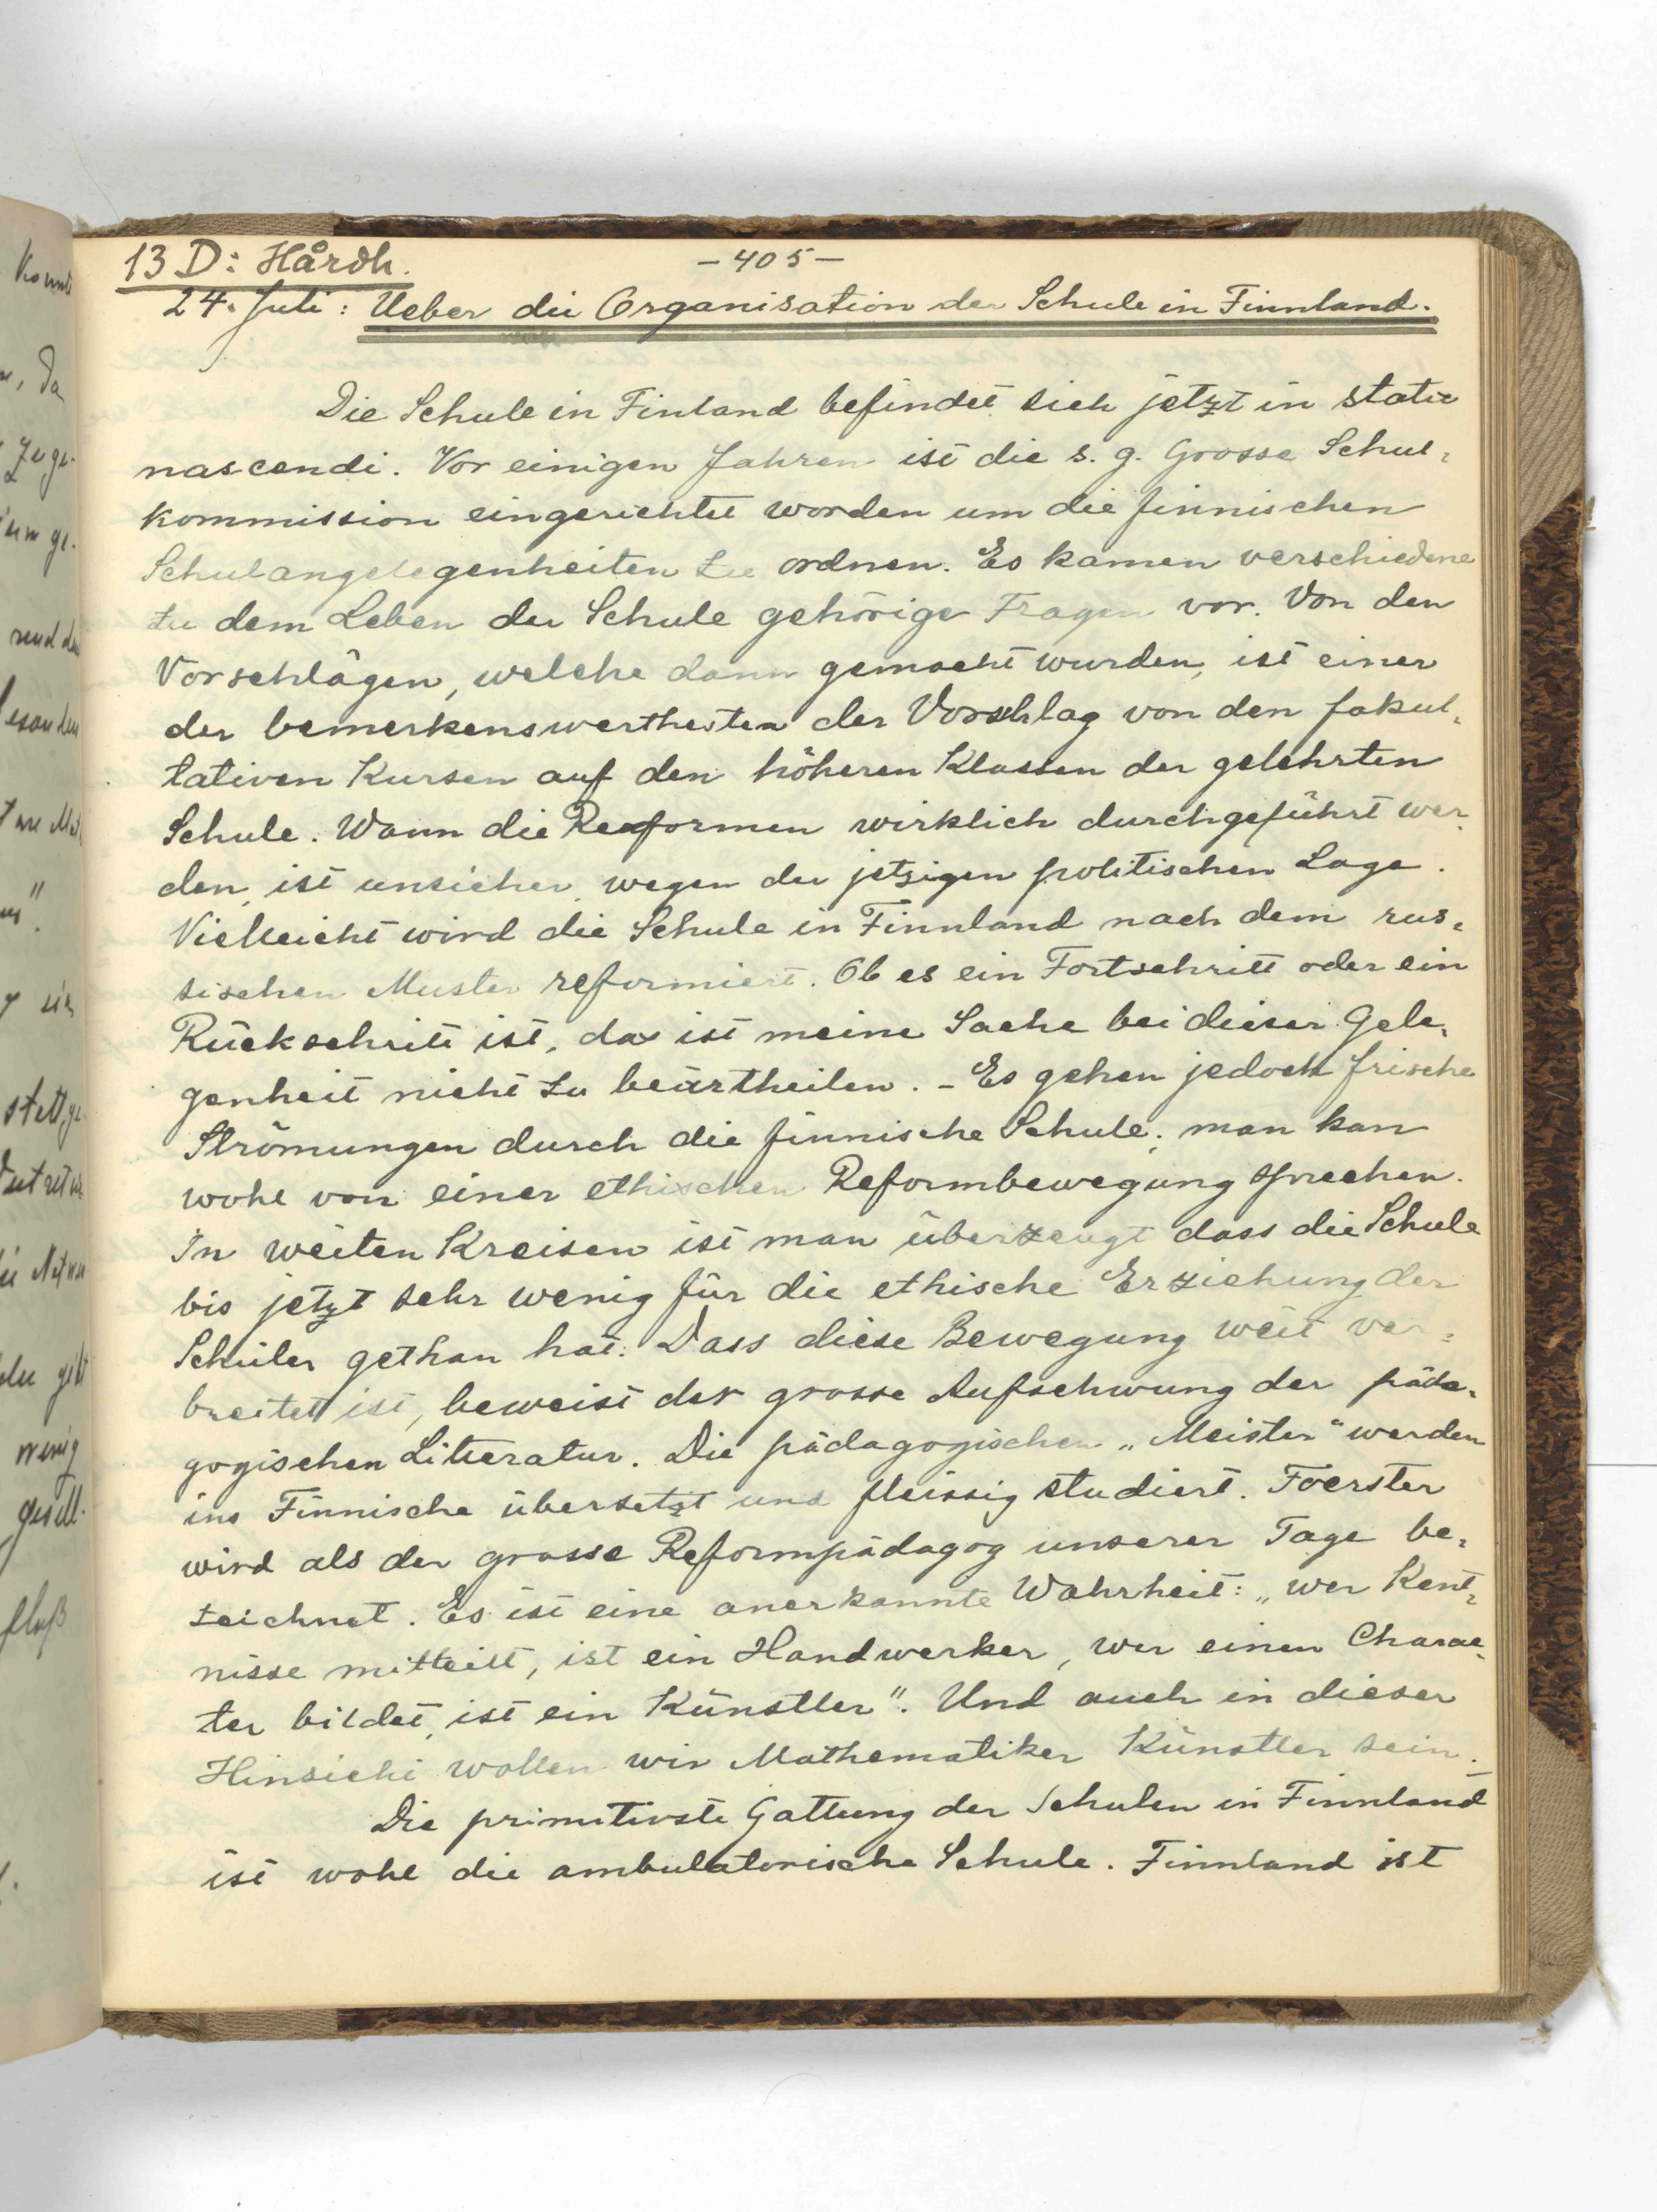 13 D: Hårdh.
- 405 -
24. Juli: Ueber die Organisation der Schule in Finnland.
Die Schule in Finland befindet sich jetzt in statu
nascendi. Vor einigen Jahren ist die s. g. Grosse Schul-
kommission eingerichtet worden um die finnischen
Schulangelegenheiten zu ordnen. Es kamen verschiedene
zu dem Leben der Schule gehörige Fragen vor. Von den
Vorschlägen, welche dann gemacht wurden, ist einer
der bemerkenswerthesten der Vorschlag von den fakul-
tativen Kursen auf den höheren Klassen der gelehrten
Schule. Wann die Reformen wirklich durchgeführt wer-
den, ist unsicher wegen der jetzigen politischen Lage.
Vielleicht wird die Schule in Finnland nach dem rus-
sischen Muster reformiert. Ob es ein Fortschritt oder ein
Rückschritt ist, das ist meine Sache bei dieser Gele-
genheit nicht zu beurtheilen. - Es gehen jedoch frische
Strömungen durch die finnische Schule; man kan
wohl von einer ethischen Reformbewegung sprechen.
In weiten Kreisen ist man überzeugt dass die Schule
bis jetzt sehr wenig für die ethische Erziehung der
Schüler gethan hat. Dass diese Bewegung weit ver-
breitet ist, beweist der grosse Aufschwung der päda-
gogischen Litteratur. Die pädagogischen „Meister“ werden
ins Finnische übersetzt und fleissig studiert. Foerster
wird als der grosse Reformpädagog unserer Tage be-
zeichnet. Es ist eine anerkannte Wahrheit: „wer Kent-
nisse mitteilt, ist ein Handwerker, wer einen Charac-
ter bildet, ist ein Künstler". Und auch in dieser
Hinsicht wollen wir Mathematiker Künstler sein.
Die primitivste Gattung der Schulen in Finnland
ist wohl die ambulatorische Schule. Finnland ist